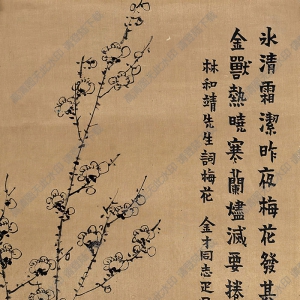 氷清霜潔昨夜梅花發其
金獸熱曉寒蘭燼滅要捲
林和靖先生詞梅花
金才同志正